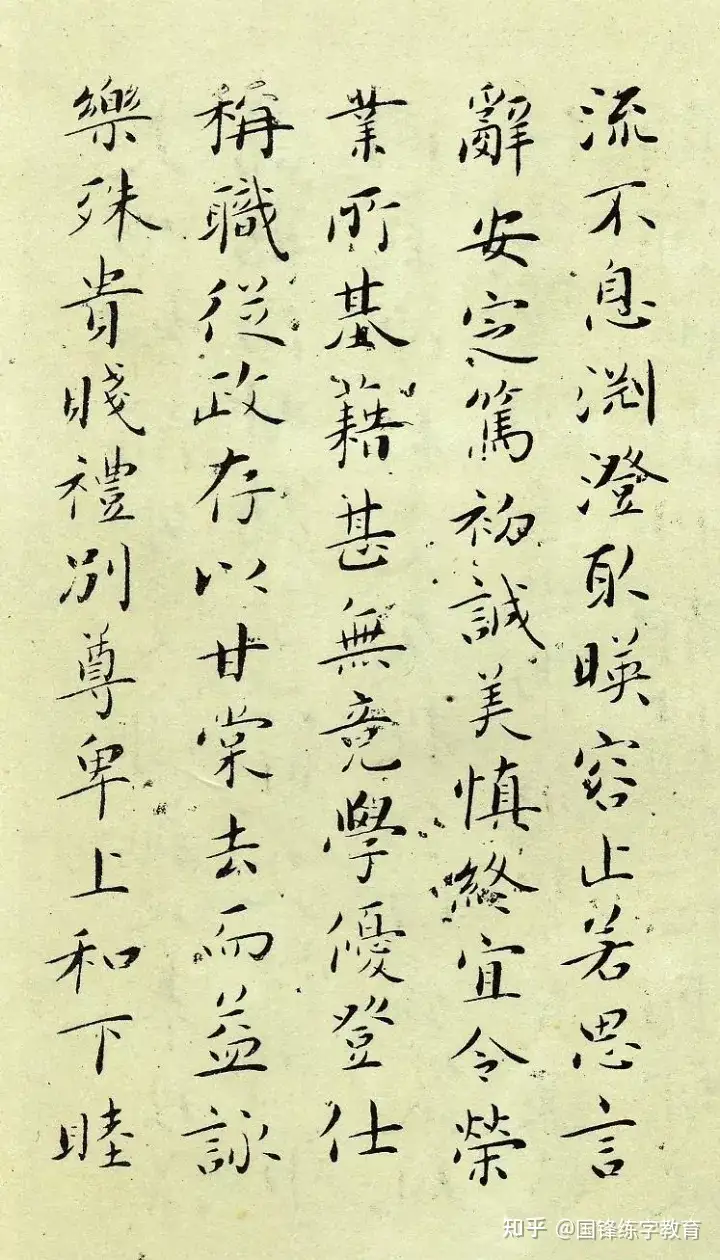 流不息淵澄取暎容止若思言
辭安定篤初誠美慎終宜令榮
業所基籍甚無竟學優登仕
稱職從政存以甘棠去而益詠
樂殊貴賤禮別尊卑上和下睦
知乎 @国锋练字教育